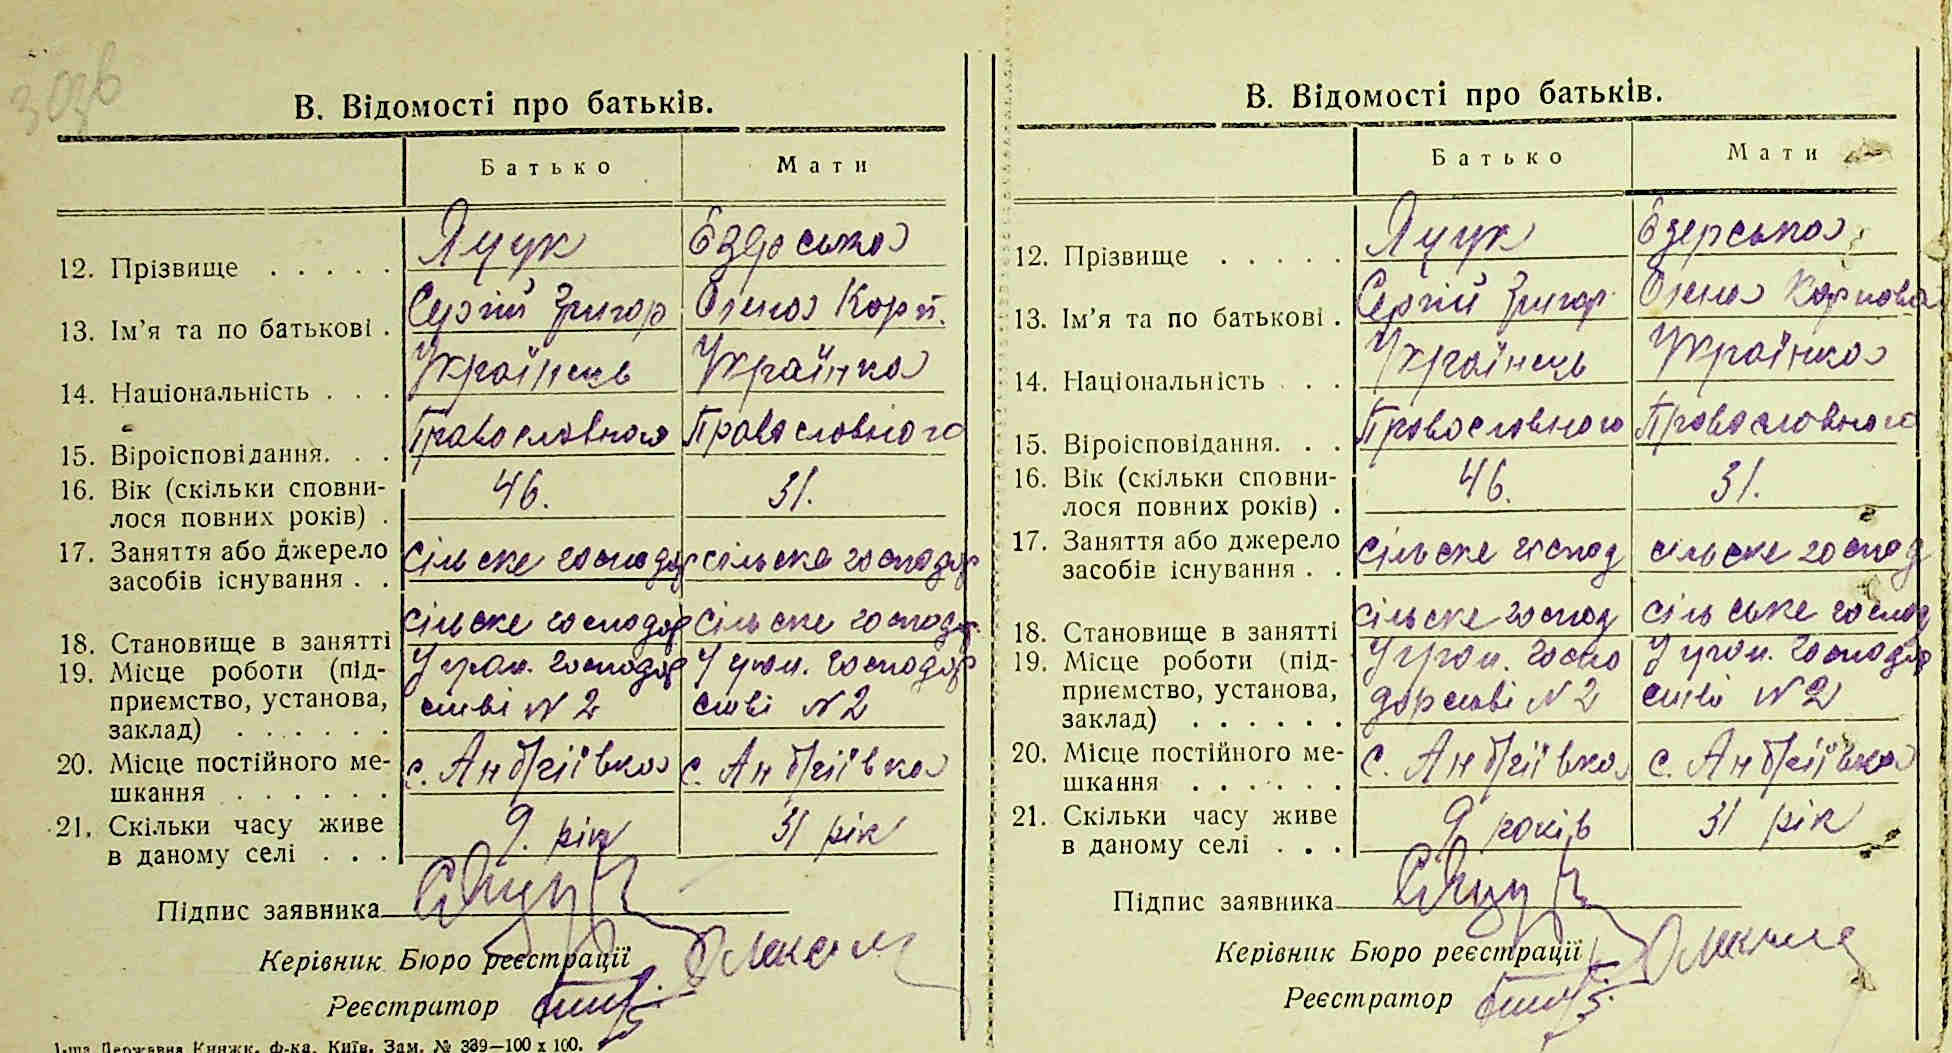 В. Відомості про батьків.
Батько Мати
12. Прізвище . . . . . Яцук Єздерська
13. Ім'я та по батькові . Сергій Григор Олена Корп.
14. Національність . . . Українець Українка
15. Віроісповідання. . . Православного Православного
16. Вік (скільки сповни-
лося повних років) . 46. 31.
17. Заняття або джерело
засобів існування . . сільске господар сільске господар
18. Становище в занятті сільске господар сільске господар
19. Місце роботи (під- У гром. господар У гром. господар
приємство, установа, стві № 2 стві № 2
заклад) . . . . . .
20. Місце постійного ме-
шкання . . . . . . с. Андріївка с. Андріївка
21. Скільки часу живе
в даному селі . . . 9. рік 31 рік
Підпис заявника СЯцук
Керівник Бюро реєстрації
Реєстратор
1-ша Державна Книжк. ф-ка. Київ. Зам. № 339—100 x 100.
В. Відомості про батьків.
Батько Мати
12. Прізвище . . . . . Яцук Єзерська
13. Ім'я та по батькові . Сергій Григор. Олена Карповa
14. Національність . . . Українець Українка
15. Віроісповідання. . . Православного Православного
16. Вік (скільки сповни-
лося повних років) . 46. 31.
17. Заняття або джерело
засобів існування . . сільске господ сільске господ
18. Становище в занятті сільске господ сільське господ
19. Місце роботи (під- У гром. госпо У гром. господар
приємство, установа, дарстві № 2 стві № 2
заклад) . . . . . .
20. Місце постійного ме-
шкання . . . . . . с. Андріївка с. Андріївка
21. Скільки часу живе
в даному селі . . . 9 років 31 рік
Підпис заявника СЯцук
Керівник Бюро реєстрації
Реєстратор